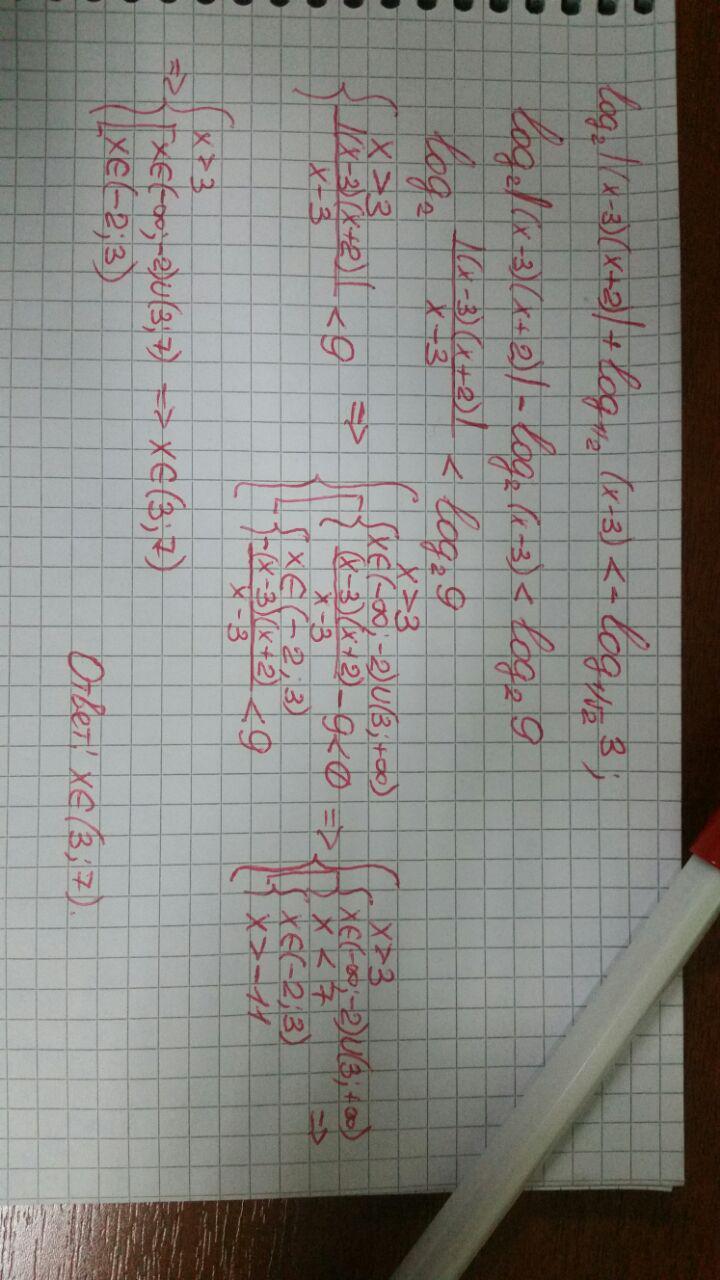 log₂|(x-3)(x+2)| + log₁/₂ (x-3) < - log₁/√₂ 3;
log₂|(x-3)(x+2)| - log₂ (x-3) < log₂ 9
log₂ |(x-3)(x+2)| / (x-3) < log₂ 9
{ x > 3
{ |(x-3)(x+2)| / (x-3) < 9 ⇒
{ x > 3
[ { x ∈ (-∞; -2) ∪ (3; +∞)
{ (x-3)(x+2) / (x-3) - 9 < 0
[ { x ∈ (-2; 3)
{ -(x-3)(x+2) / (x-3) < 9 ⇒
{ x > 3
[ { x ∈ (-∞; -2) ∪ (3; +∞)
{ x < 7
[ { x ∈ (-2; 3)
{ x > -11 ⇒
⇒ { x > 3
[ x ∈ (-∞; -2) ∪ (3; 7) ⇒ x ∈ (3; 7)
[ x ∈ (-2; 3)
Ответ: x ∈ (3; 7).